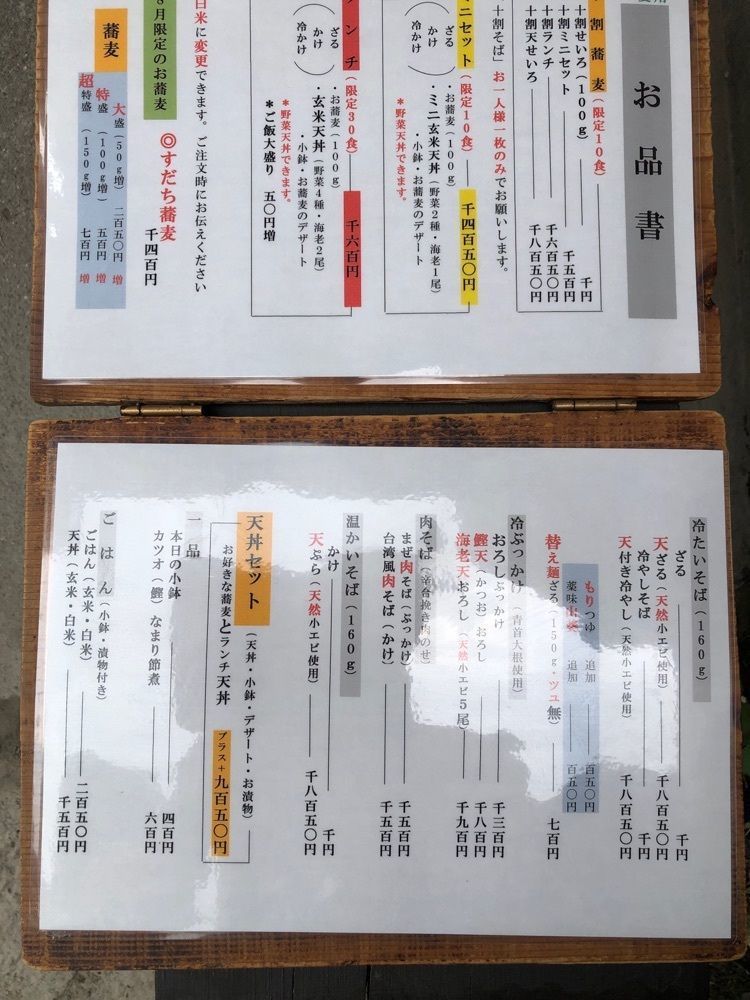 お品書
十割蕎麦(限定10食)
十割せいろ(100g) 千円
十割ミニセット 千五百円
十割ランチ 千六百五〇円
十割天せいろ 千八百五〇円
十割そば」お一人様一枚のみでお願いします。
ミニセット(限定10食) 千四百五〇円
(ざる かけ 冷かけ)
・お蕎麦(100g)
・ミニ玄米天丼(野菜2種・海老1尾)
・小鉢・お蕎麦のデザート
*野菜天丼できます。
ンチ(限定30食) 千六百円
(ざる かけ 冷かけ)
・お蕎麦(100g)
・玄米天丼(野菜4種・海老2尾)
・小鉢・お蕎麦のデザート
*野菜天丼できます。
*ご飯大盛り 五〇円増
白米に変更できます。ご注文時にお伝えください
8月限定のお蕎麦
◎すだち蕎麦 千四百円
蕎麦
大盛(50g増) 二百五〇円 増
特盛(100g増) 五百円 増
超特盛(150g増) 七百円 増
冷たいそば(160g)
ざる 千円
天ざる(天然小エビ使用) 千八百五〇円
冷やしそば 千円
天付き冷やし(天然小エビ使用) 千八百五〇円
もりつゆ 追加 百五〇円
薬味 追加 百五〇円
替え麺ざる(150g・ツユ無) 七百円
冷ぶっかけ(青首大根使用)
おろしぶっかけ 千三百円
鰹天(かつお)おろし 千八百円
海老天おろし(天然小エビ5尾) 千九百円
肉そば(辛台挽き肉のせ)
まぜ肉そば(ぶっかけ) 千五百円
台湾風肉そば(かけ) 千五百円
温かいそば(160g)
かけ 千円
天ぷら(天然小エビ使用) 千八百五〇円
天丼セット(天丼・小鉢・デザート・お漬物)
お好きな蕎麦とランチ天丼 プラス+九百五〇円
一品
本日の小鉢 四百円
カツオ(鰹)なまり節煮 六百円
ごはん(小鉢・漬物付き)
ごはん(玄米・白米) 二百五〇円
天丼(玄米・白米) 千五百円